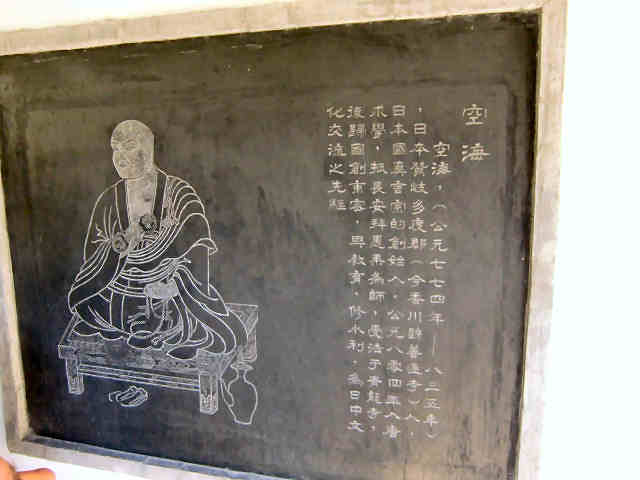 空海
空海，(公元七七四年——八三五年)
，日本贊岐多度郡(今香川縣善通寺)人，
日本國真言宗的創始人，公元八零四年入唐
求學，抵長安拜惠果為師，受法于青龍寺，
後歸國創東密，興教育，修水利，為日中文
化交流之先驅